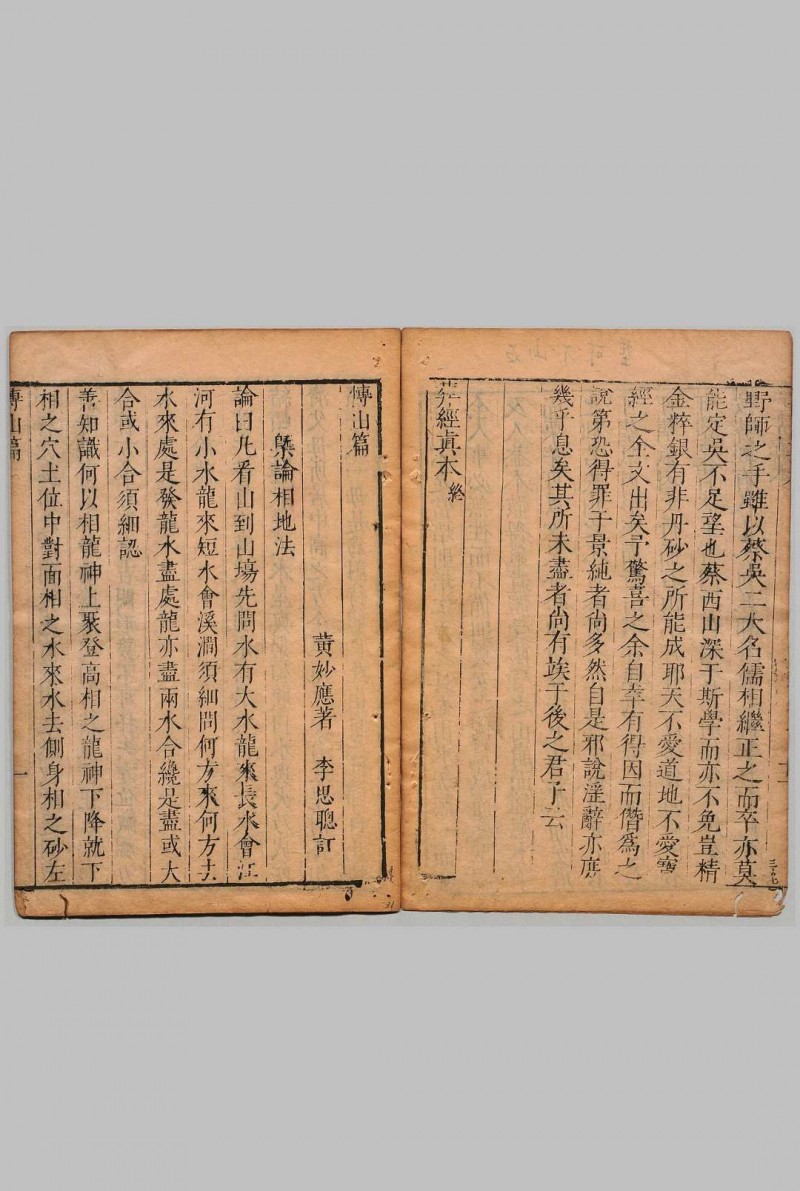 野師之手雖以蔡吳二大名儒相繼正之而卒亦莫
能定吳不足望也蔡西山深于斯學而亦不免豈精
金粹銀有非丹砂之所能成耶天不愛道地不愛寶
經之全文出矣予驚喜之余自幸有得因而僭爲之
說第恐得罪于景純者尚多然自是邪說淫辭亦庶
幾乎息矣其所未盡者尚有竢于後之君子云
葬經眞本 終
博山篇
黃妙應著 李思聰訂
槩論相地法
論曰凡看山到山塲先問水有大水龍來長水會江
河有小水龍來短水會溪澗須細問何方來何方去
水來處是發龍水盡處龍亦盡兩水合纔是盡或大
合或小合須細認
善知識何以相龍神上聚登高相之龍神下降就下
相之穴土位中對面相之水來水去側身相之砂左
博山篇
一